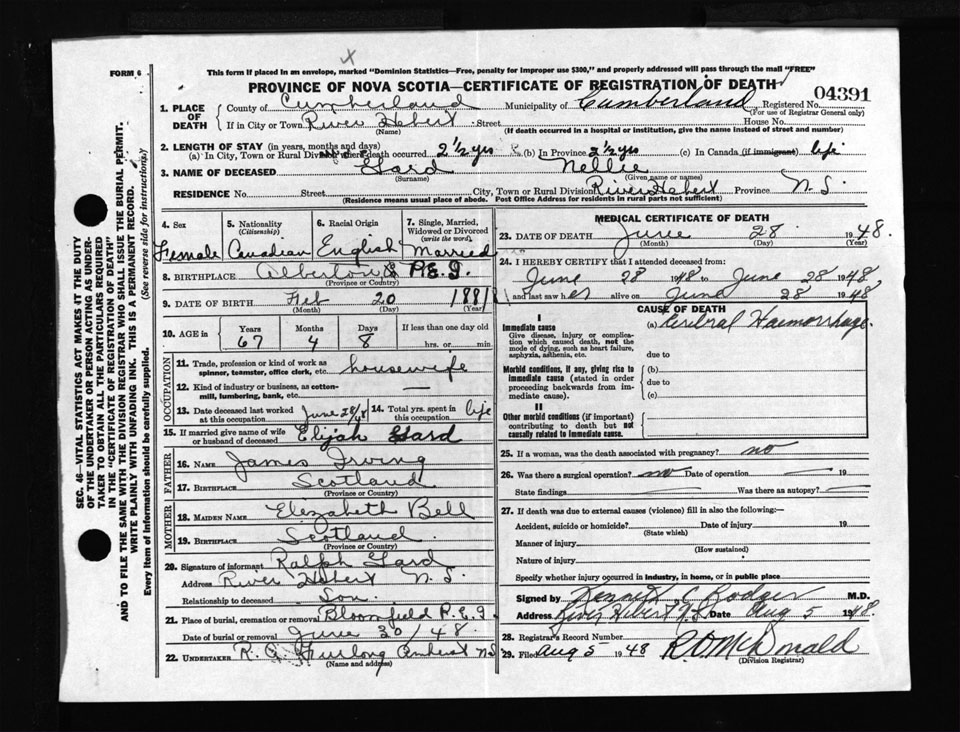 FORM 6
x
This form if placed in an envelope, marked "Dominion Statistics—Free, penalty for improper use $300," and properly addressed will pass through the mail "FREE"
PROVINCE OF NOVA SCOTIA—CERTIFICATE OF REGISTRATION OF DEATH
04391
1. PLACE OF DEATH
County of Cumberland Municipality of Cumberland Registered No.
(For use of Registrar General only)
If in City or Town River Hebert Street House No.
(Name) (If death occurred in a hospital or institution, give the name instead of street and number)
2. LENGTH OF STAY (in years, months and days)
(a) In City, Town or Rural Division where death occurred 2½ yrs (b) In Province 2½ yrs (c) In Canada (if immigrant) life
3. NAME OF DECEASED Gard Nellie
(Surname) (Given name or names)
RESIDENCE No. Street City, Town or Rural Division River Hebert Province N.S.
(Residence means usual place of abode. Post Office Address for residents in rural parts not sufficient)
4. Sex
Female
5. Nationality
(Citizenship)
Canadian
6. Racial Origin
English
7. Single, Married,
Widowed or Divorced
(write the word).
Married
8. BIRTHPLACE Alberton P.E.I.
(Province or Country)
9. DATE OF BIRTH Feb 20 1881
(Month) (Day) (Year)
10. AGE in
Years Months Days If less than one day old
67 4 8 hrs. or min.
OCCUPATION
11. Trade, profession or kind of work as
spinner, teamster, office clerk, etc. housewife
12. Kind of industry or business, as cotton-
mill, lumbering, bank, etc. —
13. Date deceased last worked
at this occupation June 28/48
14. Total yrs. spent in
this occupation life
15. If married give name of wife
or husband of deceased Elijah Gard
FATHER
16. NAME James Irving
17. BIRTHPLACE Scotland
(Province or Country)
MOTHER
18. MAIDEN NAME Elizabeth Bell
19. BIRTHPLACE Scotland.
(Province or Country)
20. Signature of informant Ralph Gard
Address River Hebert N.S.
Relationship to deceased Son.
21. Place of burial, cremation or removal Bloomfield P.E.I.
Date of burial or removal June 30/48.
22. UNDERTAKER R. Amherst N.S
(Name and address)
MEDICAL CERTIFICATE OF DEATH
23. DATE OF DEATH June 28 1948.
(Month) (Day) (Year)
24. I HEREBY CERTIFY that I attended deceased from:
June 28 1948 to June 28 1948
and last saw her alive on June 28 1948
CAUSE OF DEATH
I
Immediate cause
Give disease, injury or complica-
tion which caused death, not the
mode of dying, such as heart failure,
asphyxia, asthenia, etc.
(a) Cerebral Haemorrhage.
due to
Morbid conditions, if any, giving rise to
immediate cause (stated in order
proceeding backwards from im-
mediate cause).
(b)
due to
(c)
II
Other morbid conditions (if important)
contributing to death but not
causally related to immediate cause.
25. If a woman, was the death associated with pregnancy? no
26. Was there a surgical operation? no Date of operation 19
State findings Was there an autopsy?
27. If death was due to external causes (violence) fill in also the following:—
Accident, suicide or homicide? Date of injury 19
(State which)
Manner of injury
(How sustained)
Nature of injury
Specify whether injury occurred in industry, in home, or in public place
Signed by Kenneth C Rodger M.D.
Address River Hebert N.S. Date Aug 5 1948.
28. Registrar's Record Number
29. Filed Aug 5 1948 R.D. McDonald
(Division Registrar)
SEC. 46—VITAL STATISTICS ACT MAKES IT THE DUTY
OF THE UNDERTAKER OR PERSON ACTING AS UNDER-
TAKER TO OBTAIN ALL THE PARTICULARS REQUIRED
IN THE "CERTIFICATE OF REGISTRATION OF DEATH"
AND TO FILE THE SAME WITH THE DIVISION REGISTRAR WHO SHALL ISSUE THE BURIAL PERMIT.
WRITE PLAINLY WITH UNFADING INK. THIS IS A PERMANENT RECORD.
Every item of information should be carefully supplied. (See reverse side for instructions)